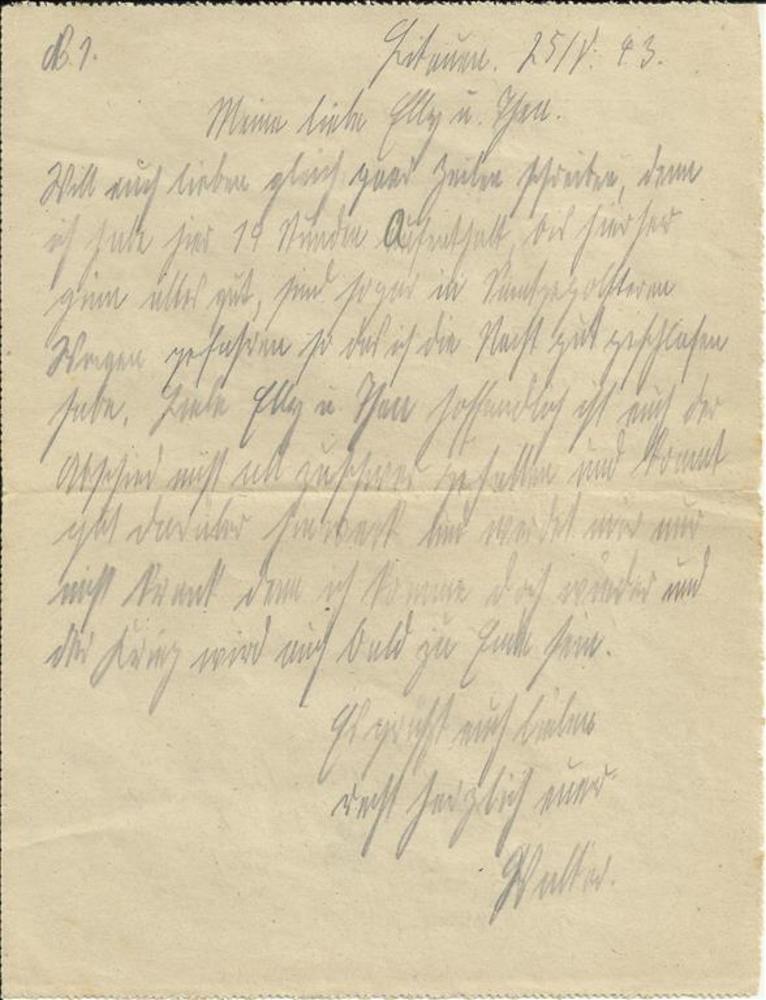 N. 1. Litauen. 25/V. 43.
Meine liebe Elly u. Theu.
Will euch lieben gleich paar Zeilen schreiben, denn
ich habe hier 19 Stunden Aufenthalt, bis hierher
ginn alles gut, sind sogar in
Wagen gefahren so das ich die Nacht gut geschlafen
habe. Liebe Elly u. Theu hoffendlich ist euch der
Abschied nicht all zuschwer gefallen und kommt
gut darüber hinweck und werdet mir nur
nicht krank denn ich komme doch wieder und
der Krieg wird auch bald zu Ende sein.
Es grüßt euch lieben
recht herzlich euer
Walter.